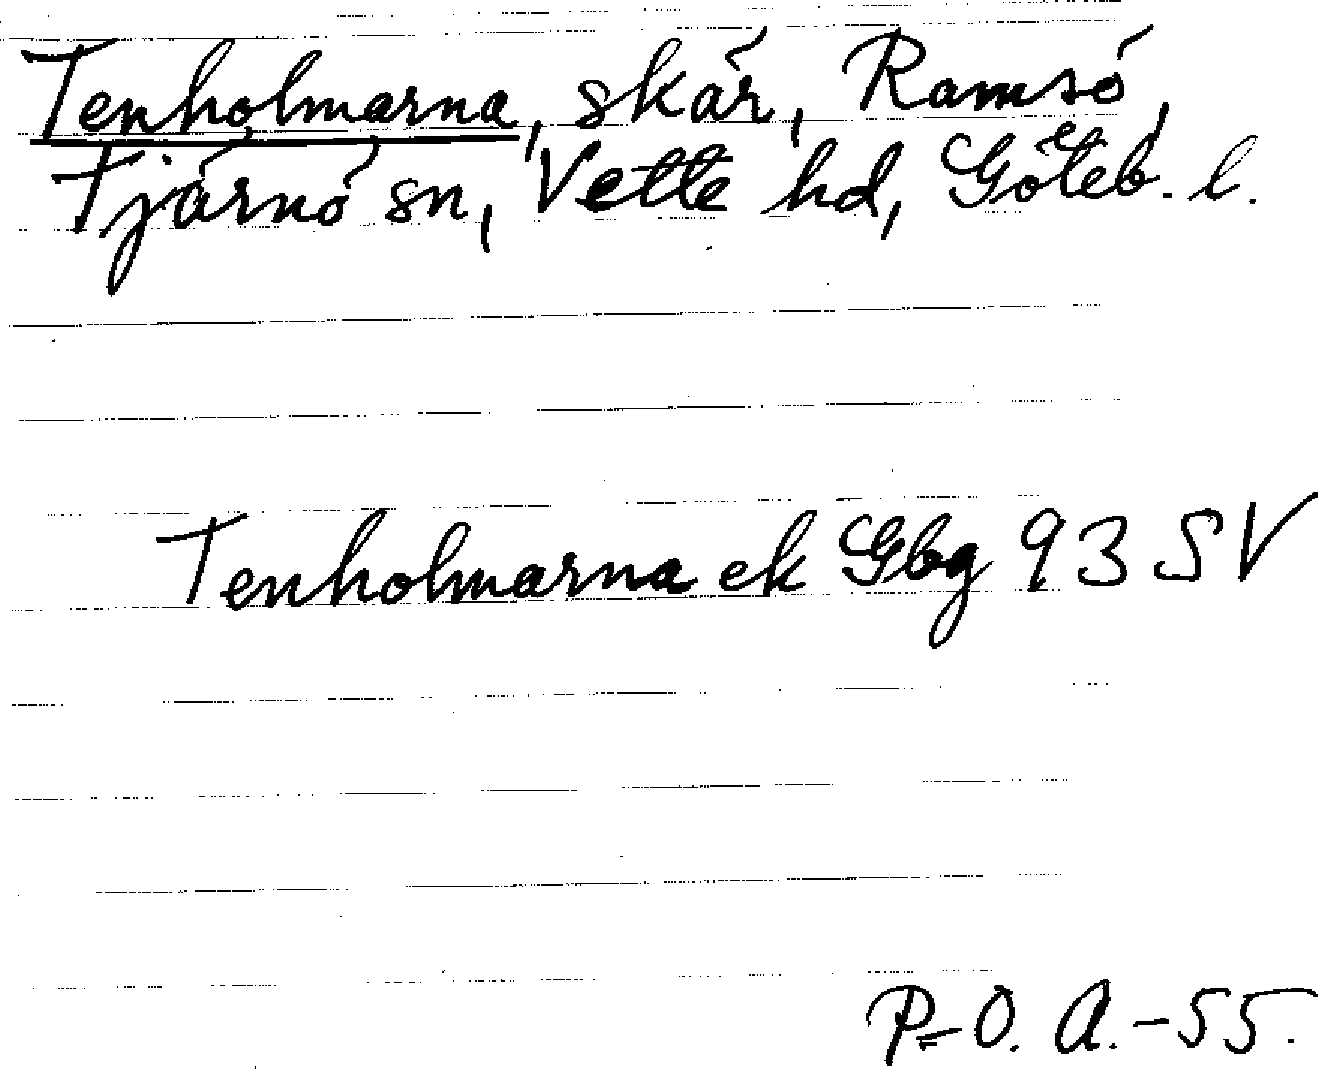 Tenholmarna, skär, Ramsö,
Tjärnö sn, Vette hd, Göteb. l.
Tenholmarna ek Gbg 93 SV
P-O. A.-55.